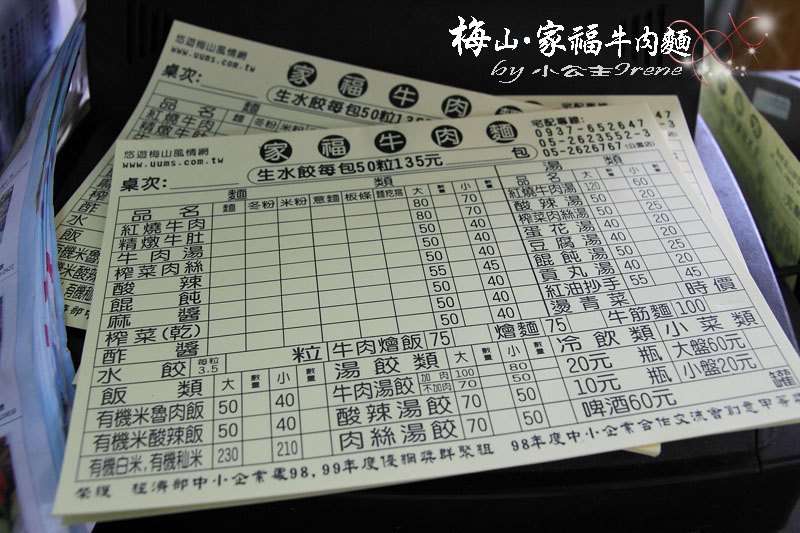 梅山·家福牛肉麵
by 小公主Irene
悠遊梅山風情網
www.uums.com.tw
桌次:
家福牛肉
生水餃每包50粒
品名
紅燒牛肉
精燉牛
悠遊梅山風情網
www.uums.com.tw
家福牛肉麵
宅配專線:
0937-652647
05-2623552-3
05-2626767
生水餃每包50粒135元 包
桌次:
麵類
品名 麵 冬粉 米粉 意麵 板條 大 數量 小 數量
紅燒牛肉 80 70
精燉牛肚 80 70
牛肉湯 50 40
榨菜肉絲 50 40
酸辣 50 40
餛飩 55 45
麻醬 50 40
榨菜(乾) 50 40
酢醬 50 40
水餃 每粒3.5 粒
湯類 大 數量 小 數量
紅燒牛肉湯 120 60
酸辣湯 40 20
榨菜肉絲湯 50 25
蛋花湯 40 20
豆腐湯 40 20
餛飩湯 50 25
貢丸湯 40 20
紅油抄手 55 45
燙青菜 時價
牛肉燴飯 75 燴麵 75 牛筋麵 100
飯類 大 數量 小 數量
有機米魯肉飯 50 40
有機米酸辣飯 50 40
有機白米,有機秈米 230 210
湯餃類 大 數量 小 數量
牛肉湯餃 加肉 100 80
不加肉 70 50
酸辣湯餃 70 50
肉絲湯餃 70 50
冷飲類 小菜類
20元 瓶 大盤60元
10元 瓶 小盤20元
啤酒60元
榮獲 經濟部中小企業處98,99年度優網獎群聚組 98年度中小企業合作交流會創意甲等獎
有機米魯肉
有機米酸辣
有機白米,有機